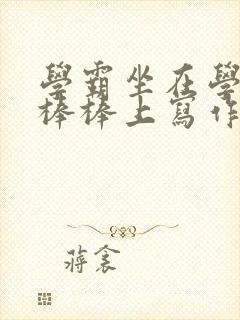 學霸坐在學
棒棒上寫作
蔣衾